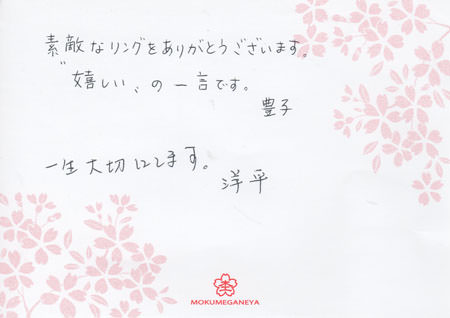 素敵なリングをありがとうございます。
〝嬉しい〟の一言です。
豊子
一生大切にします。
洋平
MOKUMEGANEYA